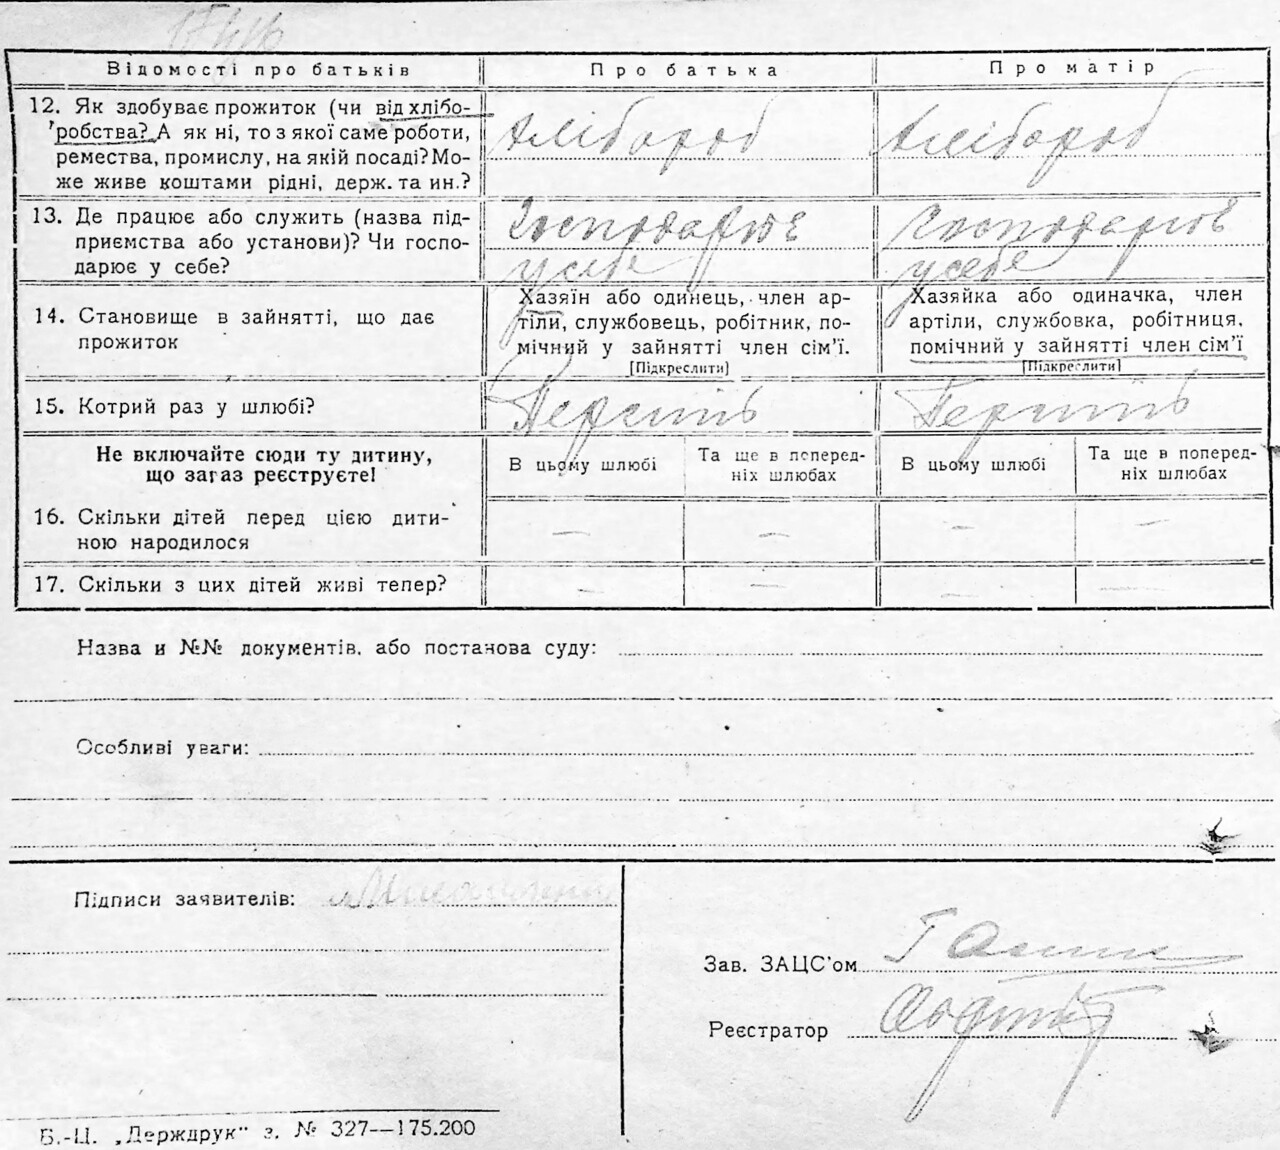 Відомості про батьків
Про батька
Про матір
12. Як здобуває прожиток (чи від хлібо-
робства? А як ні, то з якої саме роботи,
ремества, промислу, на якій посаді? Мо-
же живе коштами рідні, держ. та ин.?
Хлібороб
Хлібороб
13. Де працює або служить (назва під-
приємства або установи)? Чи госпо-
дарює у себе?
Господарює
у себе
Господарює
у себе
14. Становище в зайнятті, що дає
прожиток
Хазяїн або одинець, член ар-
тіли, службовець, робітник, по-
мічний у зайнятті член сім'ї.
[Підкреслити]
Хазяйка або одиначка, член
артіли, службовка, робітниця,
помічний у зайнятті член сім'ї
[Підкреслити]
15. Котрий раз у шлюбі?
Перший
Перший
Не включайте сюди ту дитину,
що зараз реєструєте!
В цьому шлюбі
Та ще в поперед-
ніх шлюбах
В цьому шлюбі
Та ще в поперед-
ніх шлюбах
16. Скільки дітей перед цією дити-
ною народилося
—
—
—
—
17. Скільки з цих дітей живі тепер?
—
—
—
—
Назва и №№ документів, або постанова суду:
Особливі уваги:
Підписи заявителів:
Зав. ЗАЦС'ом
Реєстратор
Б.-Ц. „Держдрук" з. № 327—175.200